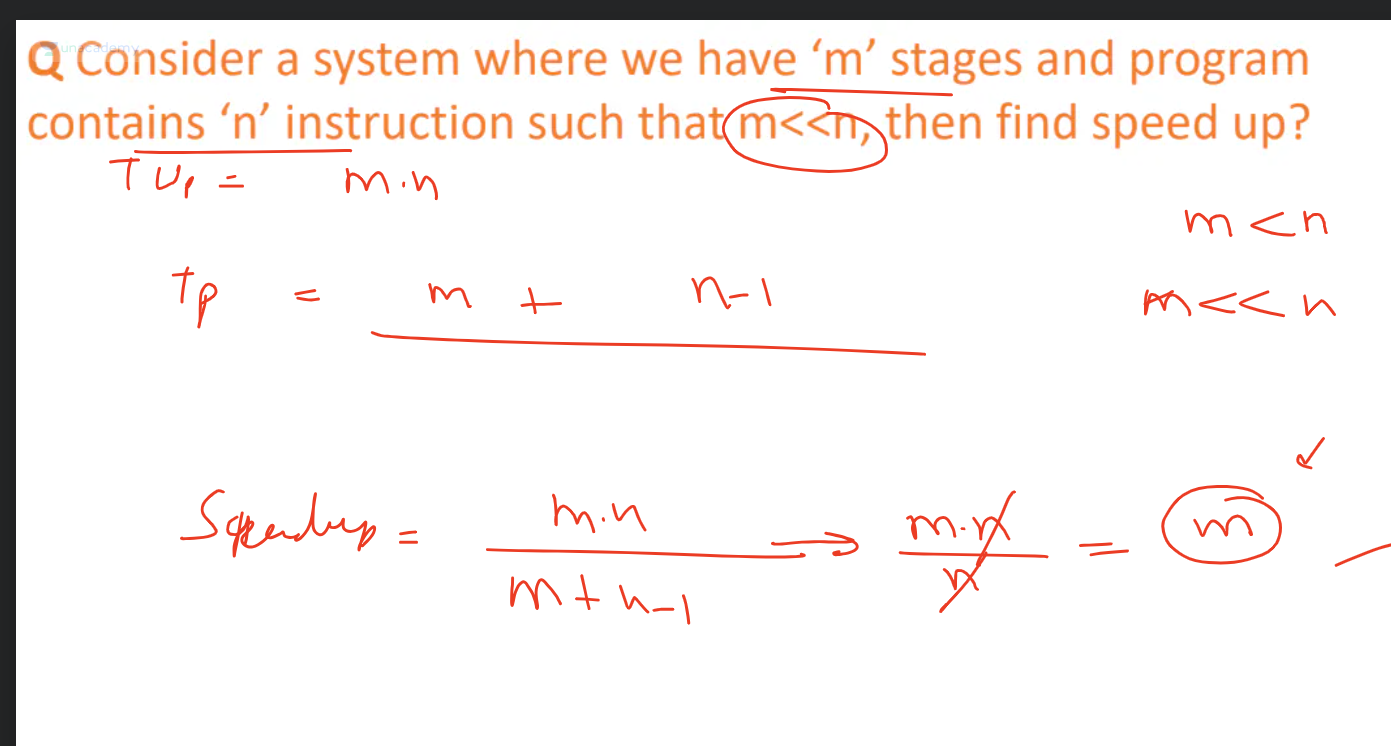 unacademy
Q Consider a system where we have ‘m’ stages and program
contains ‘n’ instruction such that m<<n, then find speed up?
TUp = m.n
m < n
Tp = m + n-1
m << n
Speedup = m.n / m + n-1 → m.n / n = m